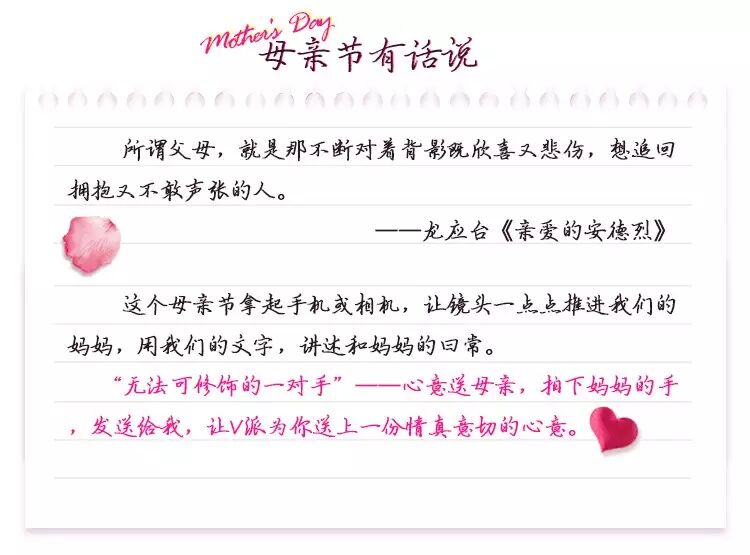 Mother's Day
母亲节有话说
所谓父母，就是那不断对着背影既欣喜又悲伤，想追回
拥抱又不敢声张的人。
——龙应台《亲爱的安德烈》
这个母亲节拿起手机或相机，让镜头一点点推进我们的
妈妈，用我们的文字，讲述和妈妈的日常。
“无法可修饰的一对手”——心意送母亲，拍下妈妈的手
，发送给我，让V派为你送上一份情真意切的心意。